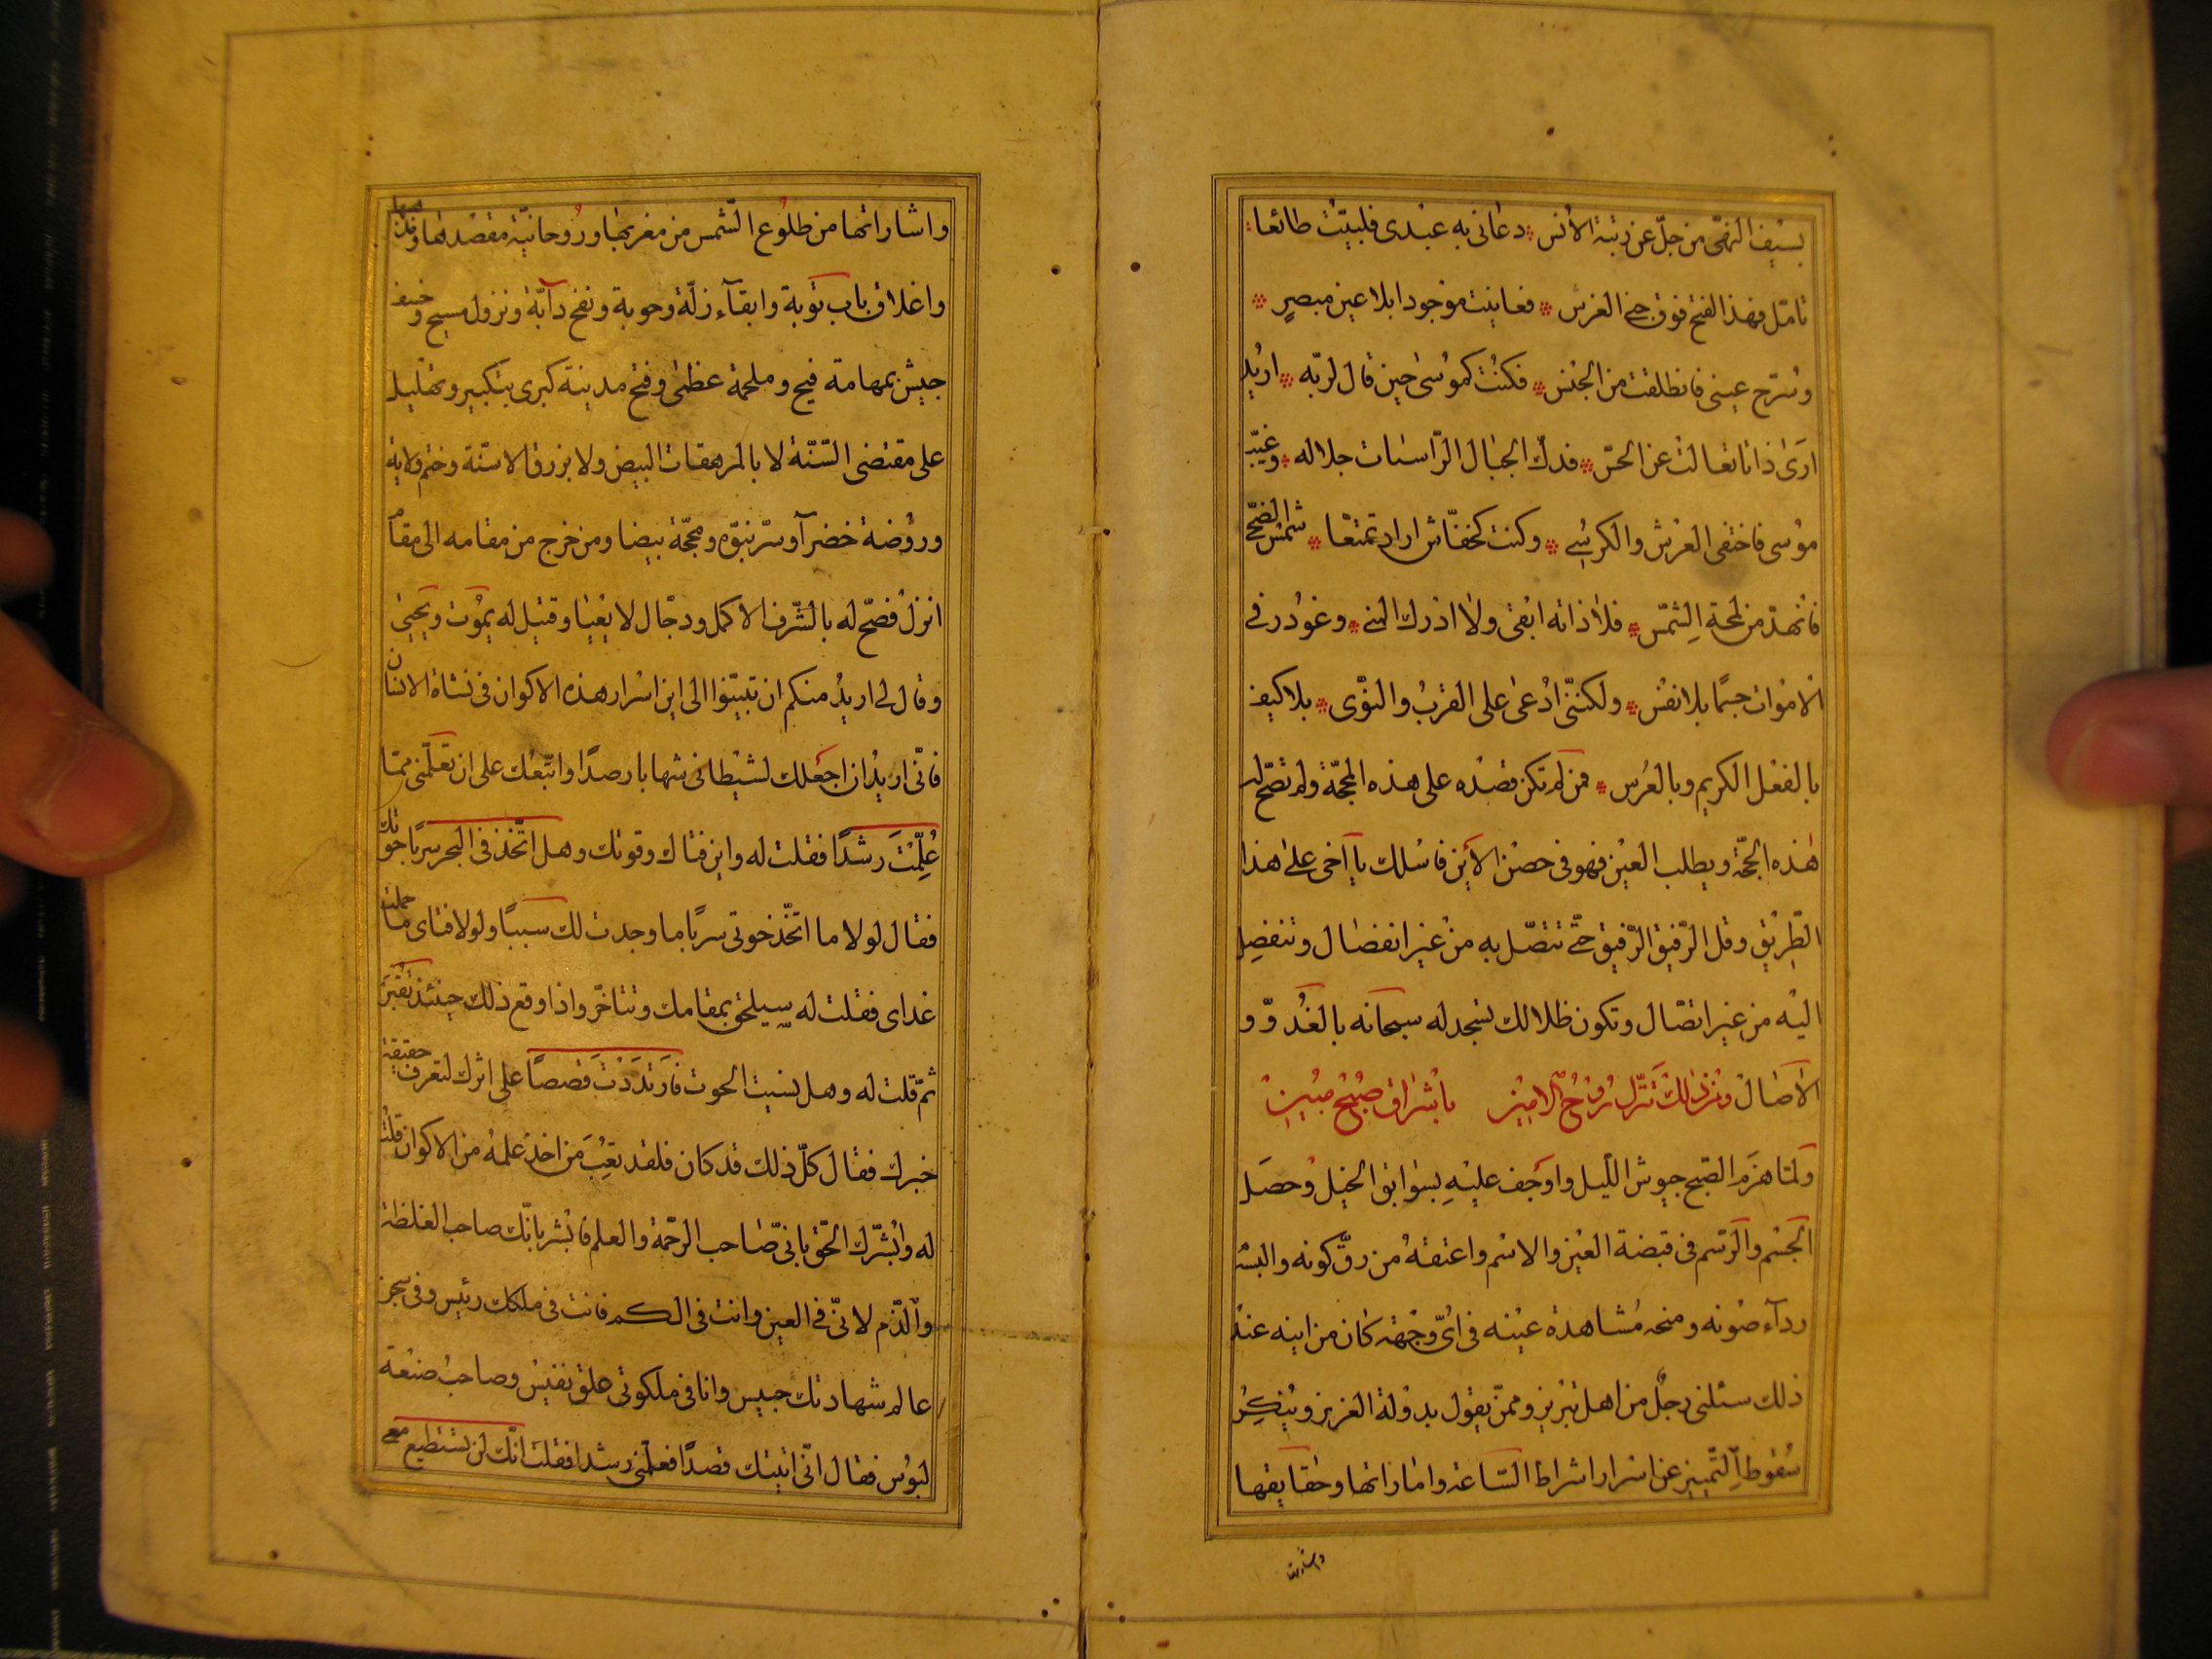 بسيف النهى من جلّ عن رتبة الانس ؞ دعانى به عبدى فلبّيت طائعا ؞
تامّل فهذا الفتح فوق جنى الغرس ؞ فعاينت موجودا بلا عين مبصرٍ ؞
وسرّح عينى فانطلقت من الحبس ؞ فكنت كموسى حين قال لربّه ؞ اريد
ارى ذاتا تعالت عن الحسّ ؞ فدكّ الجبال الرّاسيات جلاله ؞ وغيّب
موسى فاختفى العرش والكرسى ؞ وكنت كخفّاش اراد تمتعّا ؞ شمس الضحى
فانهدّ من لمحة الشّمس ؞ فلا ذاته ابقى ولا ادرك المنى ؞ وغودر فى
الاموات جسمًا بلا نفس ؞ ولكننّى ادعى على القرب والنوّى ؞ بلا كيف
بالفعل الكريم وبالعرس ؞ فمن لم تكن قصده على هذه المحجّة ولم تصحّ له
هذه الحجّة ويطلب العين فهو فى حصن الاين فاسلك يا اخى على هذا
الطّريق وقل الرّفيق الرّفيق حتّى تتصّل به من غير انفصال وتنفصل
اليه من غير اتصّال وتكون ظلالك تسجد له سبحانه بالغدوّ و
الآصال ومن ذلك تنزّل روح الامين باشراق صبح مبين
ولمّا هزم الصّبح جيوش اللّيل واوجف عليه بسوابق الخيل وحصل
الجسم والرّسم فى قبضة العين والاسم واعتقه من رقّ كونه والبسه
ردآء صونه ومنحه مشاهدة عينه فى اىّ وجهة كان من اينه عند
ذلك سئلنى رجل من اهل تبريز وممّن يقول بدولة العزيز وينكر
سقوط التّمييز عن اسرار اشراط السّاعة واماراتها وحقايقها
واشاراتها
واشاراتها من طلوع الشّمس من مغربها وروحانيّة مقصدها ومذهبها
واغلاق باب توبة وابقآء زلّة وحوبة ونفخ دآبّة ونزول مسيح وخسف
جيش بمهامة فيح وملحمة عظمى وفتح مدينة كبرى بتكبير وتهليل
على مقتضى السّنّة لا بالمرهفات البيض ولا بزرق الاسنّة وختم ولاية
وروضة خضرآ وسرّ نبوّه ومحجّة بيضا ومن خرج من مقامه الى مقام
انزل فصحّ له بالشّرف الاكمل ودجّال لا يعيا وقتيل له يموت ويحيى
وقال لى اريد منكم ان تبيّنوا الى اين اسرار هذه الاكوان فى نشاة الانسان
فانّى اريد ان اجعلك لشيطانى شهابا رصدًا واتّبعك على ان تعلّمنى ممّا
عُلّمت رشدًا فقلت له واين فتاك وقوتك وهل اتّخذ فى البحر سربًا حوتك
فقال لولا ما اتخّذ حوتى سربًا ما وجدت لك سببًا ولولا فتاى ما حملت
غداى فقلت له سيلحق بمقامك وتتاخّر واذا وقع ذلك حينئذ
ثمّ قلت له وهل نسيت الحوت فارتددت قصصًا على اثرك لتعرف حقيقة
خبرك فقال كلّ ذلك قد كان فلقد تعب من اخذ علمه من الاكوان قلت
له وابشّرك الحقّ بانّى صاحب الرحّمة والعلم فابشر بانّك صاحب الغلظة
والذّم لانّى فى العين وانت فى الكم فانت فى ملكك رئيس وفى سجن
عالم شهادتك حبيس وانا فى ملكوتى علق نفيس وصاحب صنعة
لبوس فقال انّى اتيتك قصدًا فعلّمنى رشدا فقلت انّك لن تستطيع معى